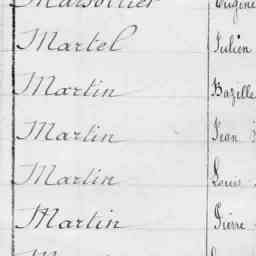 Marsollier Eugène
Martel Julien
Martin Bazelle
Martin Jean
Martin Louis
Martin Pierre
Martin